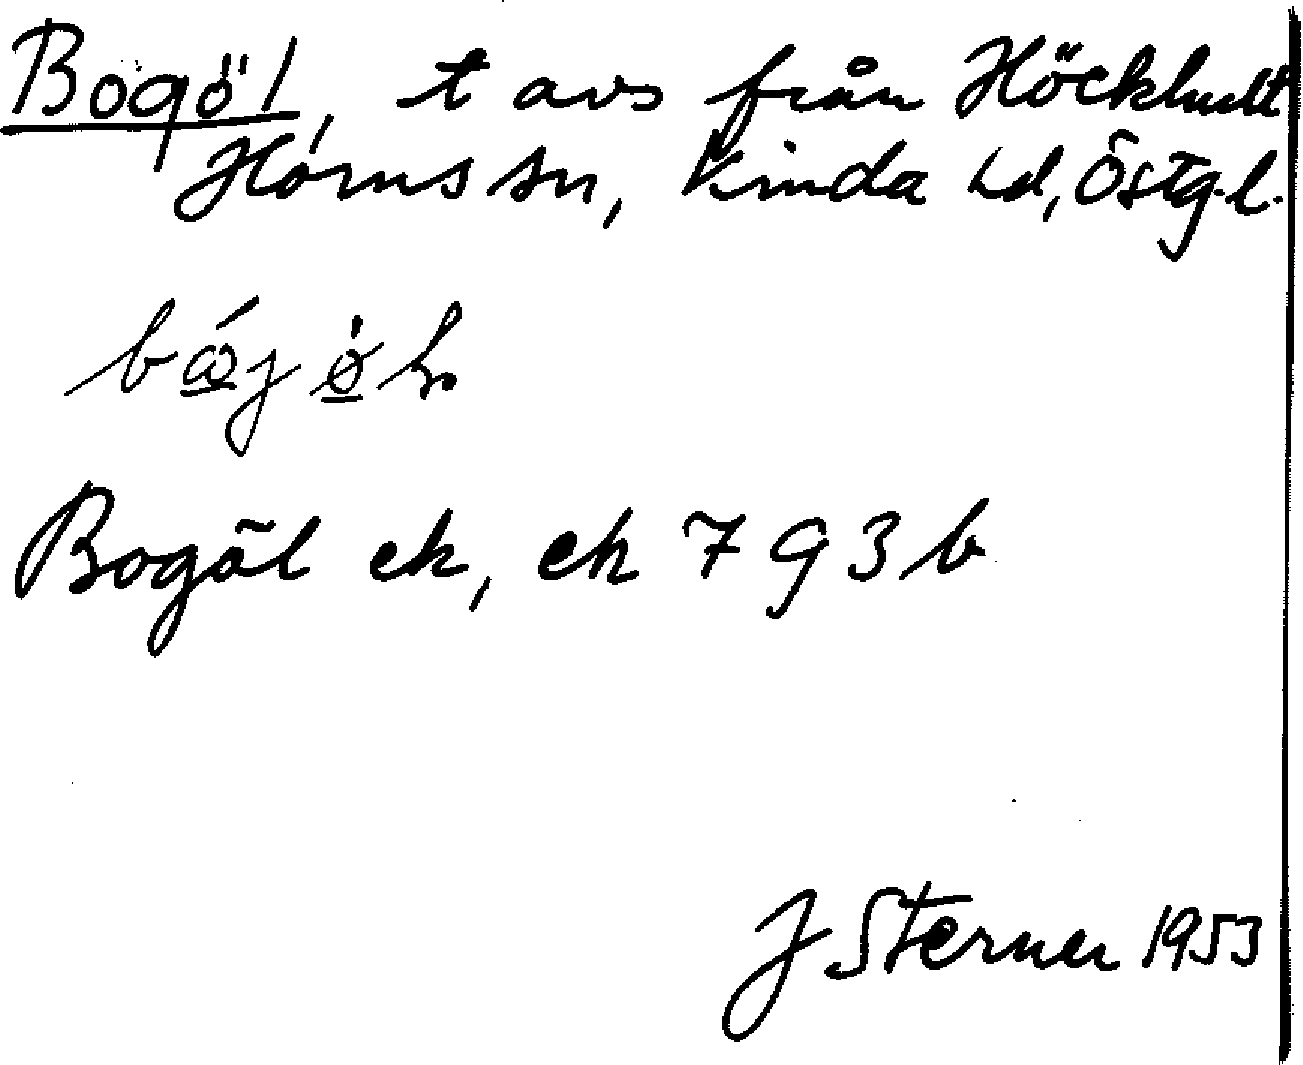 Bogöl, t avs från Höckhult
Horns sn, Kinda hd, Östg.l.
Bogöl ek, ek 7 9 3 b
J Sterner 1953